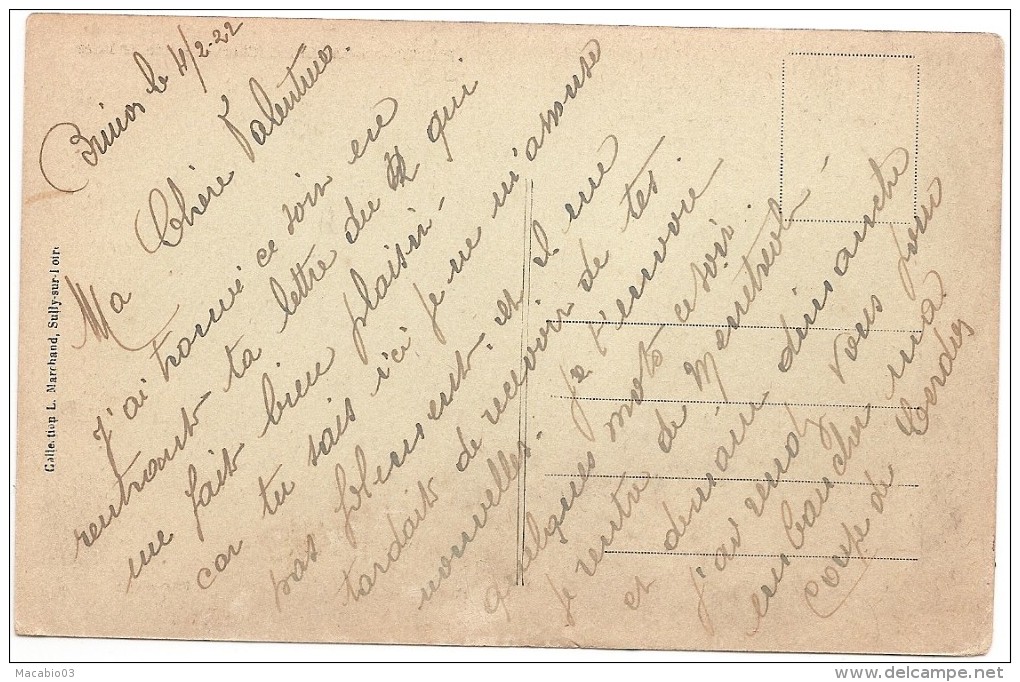 le 4/2-22
Ma Chère Valentine.
J'ai trouvé ce soir en
rentrant ta lettre du qui
me fait bien plaisir -
car tu sais ici je ne m'amuse
pas follement. et il me
tardait de recevoir de tes
nouvelles. Je t'envoie
quelques mots ce soir.
Je rentre de Ménétréol -
et demain dimanche
J'ai rendez vous pour
ma
coupe de Cordes
Collection L. Marchand, Sully-sur-Loire
Macabio03
delcampe.net